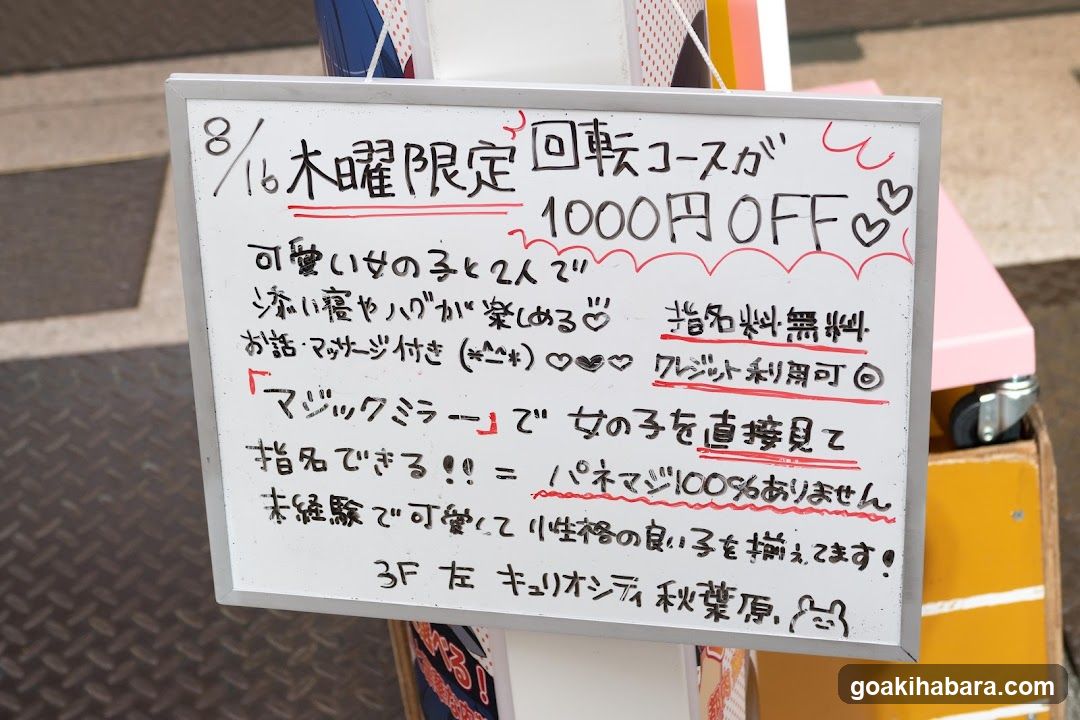 8/16 木曜限定 回転コースが
1000円OFF♡♡
可愛い女の子と2人で
添い寝やハグが楽しめる♡
指名料無料
お話・マッサージ付き (*^^*) ♡♥♡
クレジット利用可◎
「マジックミラー」で 女の子を直接見て
指名できる!! = パネマジ100%ありません
未経験で可愛くて 小性格の良い子を揃えてます!
3F 左 キュリオシティ秋葉原
べる!
goakihabara.com